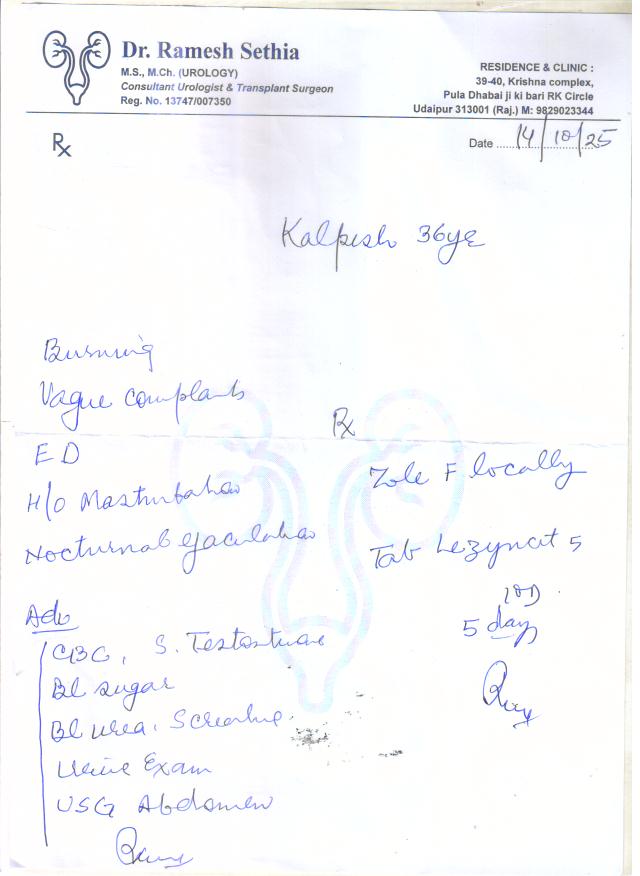 Dr. Ramesh Sethia
M.S., M.Ch. (UROLOGY)
Consultant Urologist & Transplant Surgeon
Reg. No. 13747/007350
RESIDENCE & CLINIC :
39-40, Krishna complex,
Pula Dhabai ji ki bari RK Circle
Udaipur 313001 (Raj.) M: 9829023344
Date 14/10/25
Rx
Kalpesh 36yr
Burning
Vague complants
ED
H/O Masturbation
Nocturnal ejaculation
Rx
Zole F locally
Tab Lezyncet 5
1OD
5 day
Adv
CBC, S. Testosterone
Bl sugar
Bl urea, S Creatine
Urine Exam
USG Abdomen